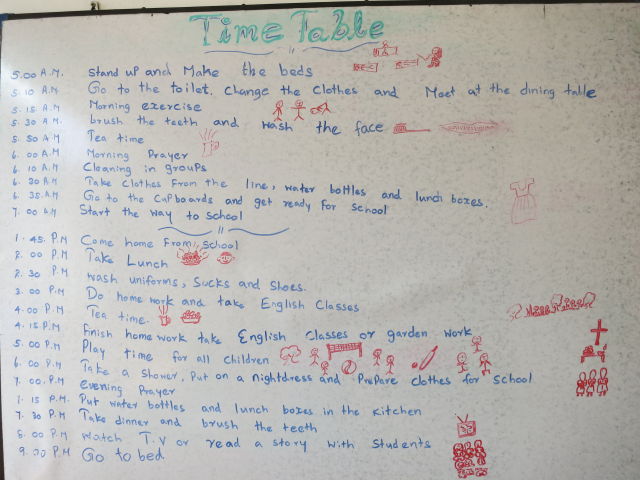 Time Table
5.00 A.M. Stand up and Make the beds
5.10 A.M Go to the toilet. Change the Clothes and Meet at the dining table
5.15 A.M Morning exercise
5.30 A.M. brush the teeth and wash the face
5.50 A.M Tea time
6.00 A.M Morning Prayer
6.10 A.M Cleaning in groups
6.30 A.M Take Clothes from the line, water bottles and lunch boxes.
6.35 A.M Go to the Cupboards and get ready for School
7.00 A.M Start the way to school
1.45. P.M Come home From school
2.00 P.M Take Lunch
2.30 P.M wash uniforms, Sucks and Shoes.
3.00 P.M Do home work and take English Classes
4.00 P.M Tea time.
4.15 P.M Finish home work take English classes or garden work
5.00 P.M Play time for all children
6.00 P.M Take a Shower, Put on a nightdress and Prepare clothes for School
7.00. P.M Evening Prayer
7.15 P.M. Put water bottles and lunch boxes in the kitchen
7.30 P.M Take dinner and brush the teeth
8.00 P.M Watch T.V or read a story with Students
9.00 P.M Go to bed